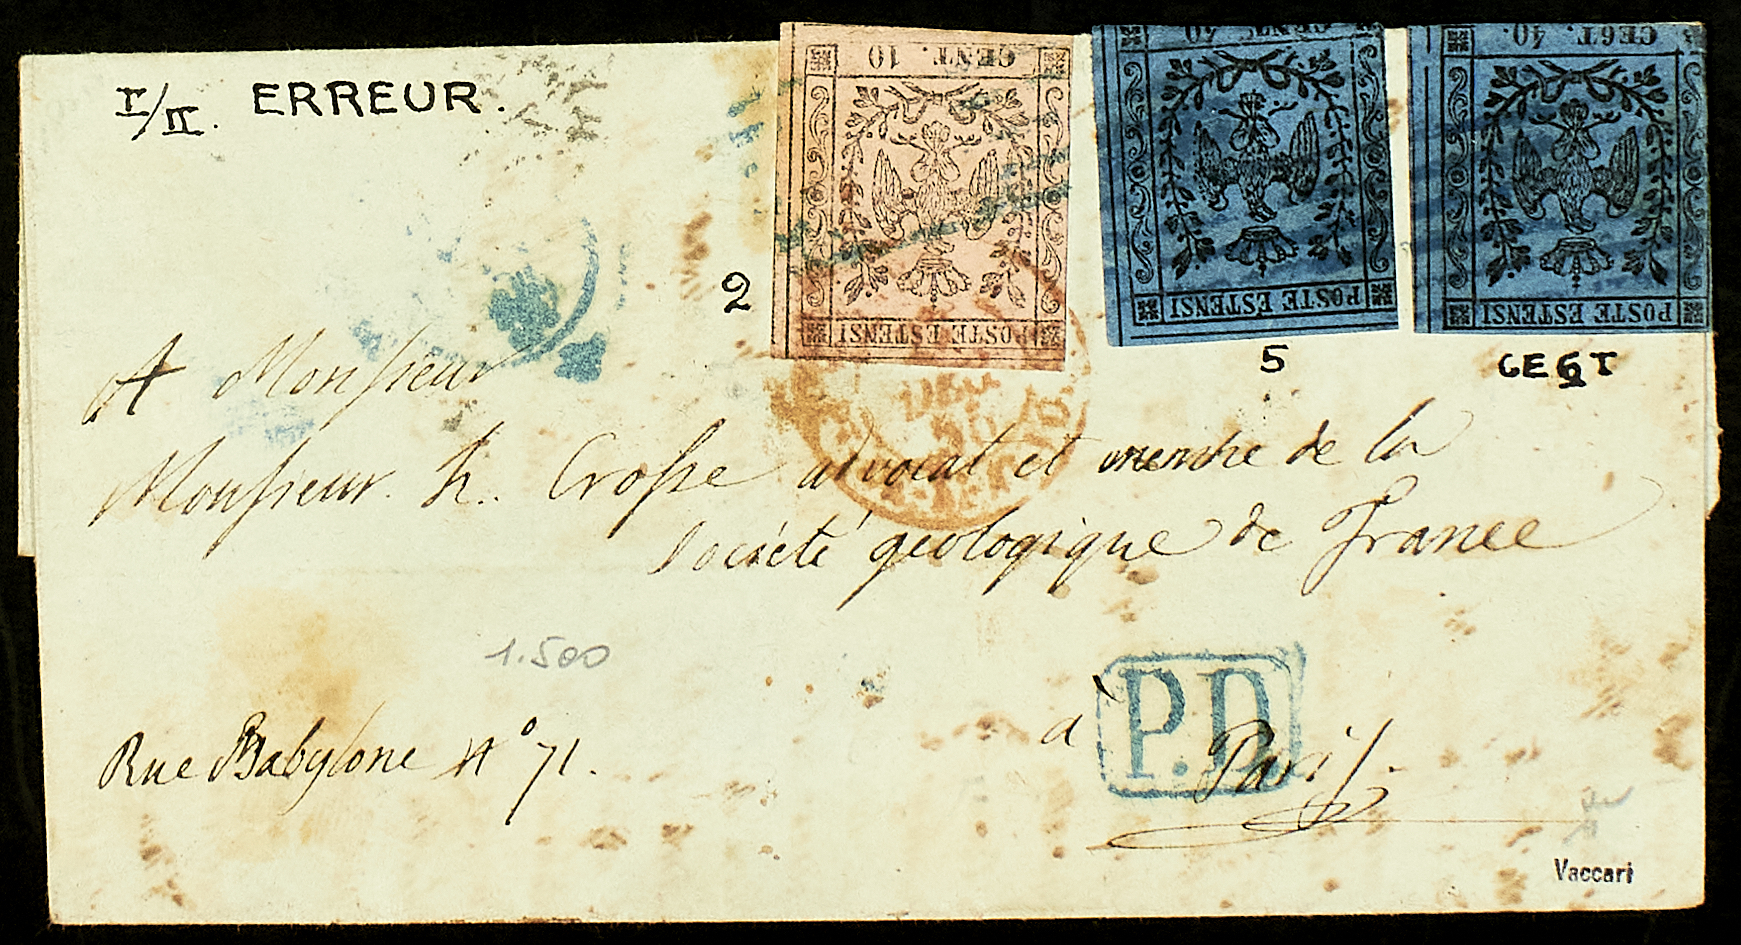 I/II. ERREUR.
CENT. 10
POSTE ESTENSI
CENT. 40
POSTE ESTENSI
CE6T. 40.
POSTE ESTENSI
2
5
CE6T
A Monsieur
Monsieur h. Crosse advocat et membre de la
société géologique de France
1.500
P.D.
Rue Babylone N° 71.
a Paris.
Vaccari